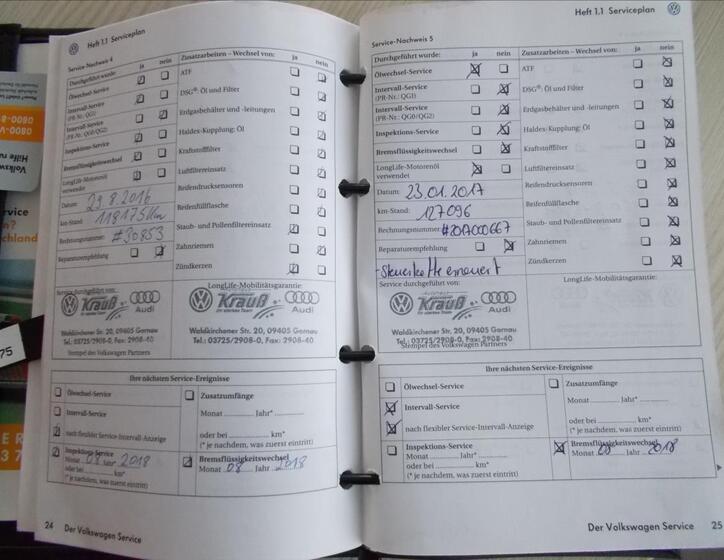 Heft 1.1 Serviceplan
Service-Nachweis 4
Durchgeführt wurde: ja nein
Ölwechsel-Service
Intervall-Service
(PR-Nr.: QG1)
Intervall-Service
(PR-Nr.: QG0/QG2)
Inspektions-Service
Bremsflüssigkeitswechsel
LongLife-Motorenöl
verwendet
Datum: 29.8.2016
km-Stand: 118175 km
Rechnungsnummer: #30853
Reparaturempfehlung
Zusatzarbeiten – Wechsel von: ja nein
ATF
DSG®: Öl und Filter
Erdgasbehälter und -leitungen
Haldex-Kupplung: Öl
Kraftstofffilter
Luftfiltereinsatz
Reifendrucksensoren
Reifenfüllflasche
Staub- und Pollenfiltereinsatz
Zahnriemen
Zündkerzen
Service durchgeführt von:
Krauß
Audi
Waldkirchener Str. 20, 09405 Gornau
Tel.: 03725/2908-0, Fax: 2908-40
Stempel des Volkswagen Partners
LongLife-Mobilitätsgarantie:
Krauß
Audi
Waldkirchener Str. 20, 09405 Gornau
Tel.: 03725/2908-0, Fax: 2908-40
Ihre nächsten Service-Ereignisse
Ölwechsel-Service
Intervall-Service
nach flexibler Service-Intervall-Anzeige
Inspektions-Service
Monat 08 Jahr 2018
oder bei km*
(* je nachdem, was zuerst eintritt)
Zusatzumfänge
Monat Jahr*
oder bei km*
(* je nachdem, was zuerst eintritt)
Bremsflüssigkeitswechsel
Monat 08 Jahr 2018
24 Der Volkswagen Service
Heft 1.1 Serviceplan
Service-Nachweis 5
Durchgeführt wurde: ja nein
Ölwechsel-Service
Intervall-Service
(PR-Nr.: QG1)
Intervall-Service
(PR-Nr.: QG0/QG2)
Inspektions-Service
Bremsflüssigkeitswechsel
LongLife-Motorenöl
verwendet
Datum: 23.01.2017
km-Stand: 127096
Rechnungsnummer: #20A000667
Reparaturempfehlung
- Steuerkette erneuert
Zusatzarbeiten – Wechsel von: ja nein
ATF
DSG®: Öl und Filter
Erdgasbehälter und -leitungen
Haldex-Kupplung: Öl
Kraftstofffilter
Luftfiltereinsatz
Reifendrucksensoren
Reifenfüllflasche
Staub- und Pollenfiltereinsatz
Zahnriemen
Zündkerzen
Service durchgeführt von:
Krauß
Audi
Waldkirchener Str. 20, 09405 Gornau
Tel.: 03725/2908-0, Fax: 2908-40
Stempel des Volkswagen Partners
LongLife-Mobilitätsgarantie:
Ihre nächsten Service-Ereignisse
Ölwechsel-Service
Intervall-Service
nach flexibler Service-Intervall-Anzeige
Inspektions-Service
Monat Jahr*
oder bei km*
(* je nachdem, was zuerst eintritt)
Zusatzumfänge
Monat Jahr*
oder bei km*
(* je nachdem, was zuerst eintritt)
Bremsflüssigkeitswechsel
Monat 08 Jahr 2018
Der Volkswagen Service 25
75